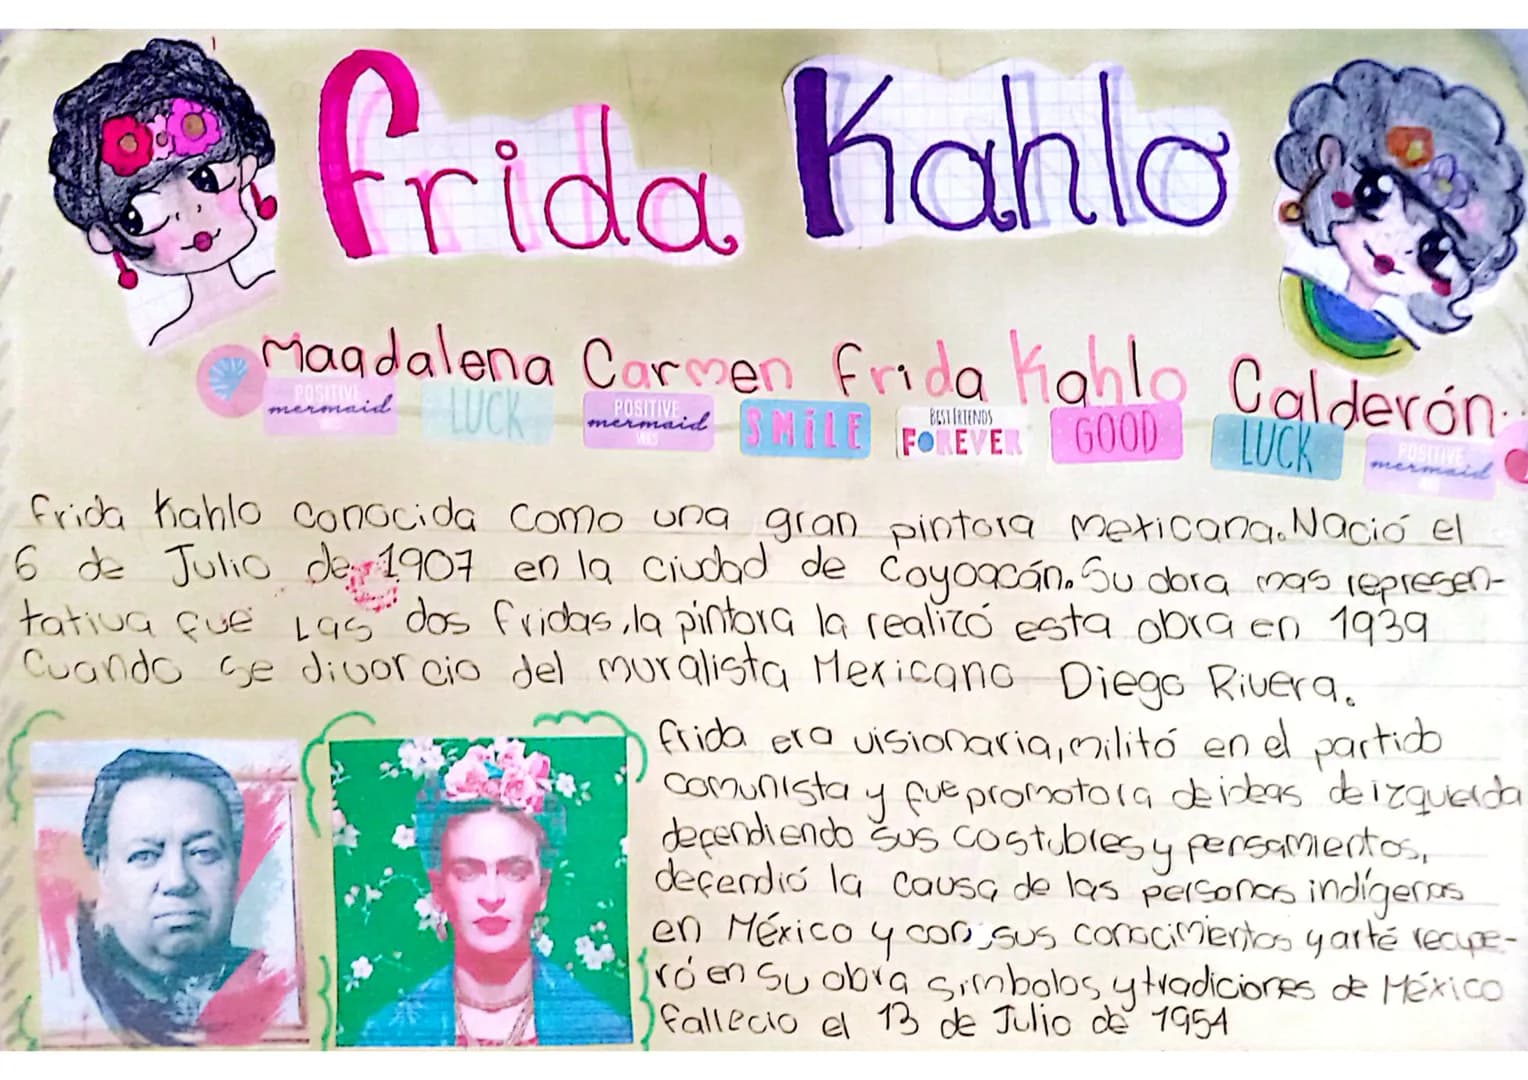 Frida Kahlo
Magdalena Carmen Frida Kahlo Calderón.
POSITIVE mermaid LUCK POSITIVE mermaid VIBES SMiLE BEST FRIENDS FOREVER GOOD LUCK POSITIVE mermaid
Frida Kahlo conocida como una gran pintora Mexicana. Nació el
6 de Julio de 1907 en la ciudad de Coyoacán. Su obra mas represen-
tativa fue Las dos fridas, la pintora la realizó esta obra en 1939
Cuando se divorcio del muralista Mexicano Diego Rivera.
Frida era visionaria, militó en el partido
comunista y fue promotora de ideas de izquierda
defendiendo sus costubles y pensamientos,
defendió la causa de las personas indígenas
en México y con sus conocimientos y arté recupe-
ró en su obra simbolos y tradiciones de México
fallecio el 13 de Julio de 1954